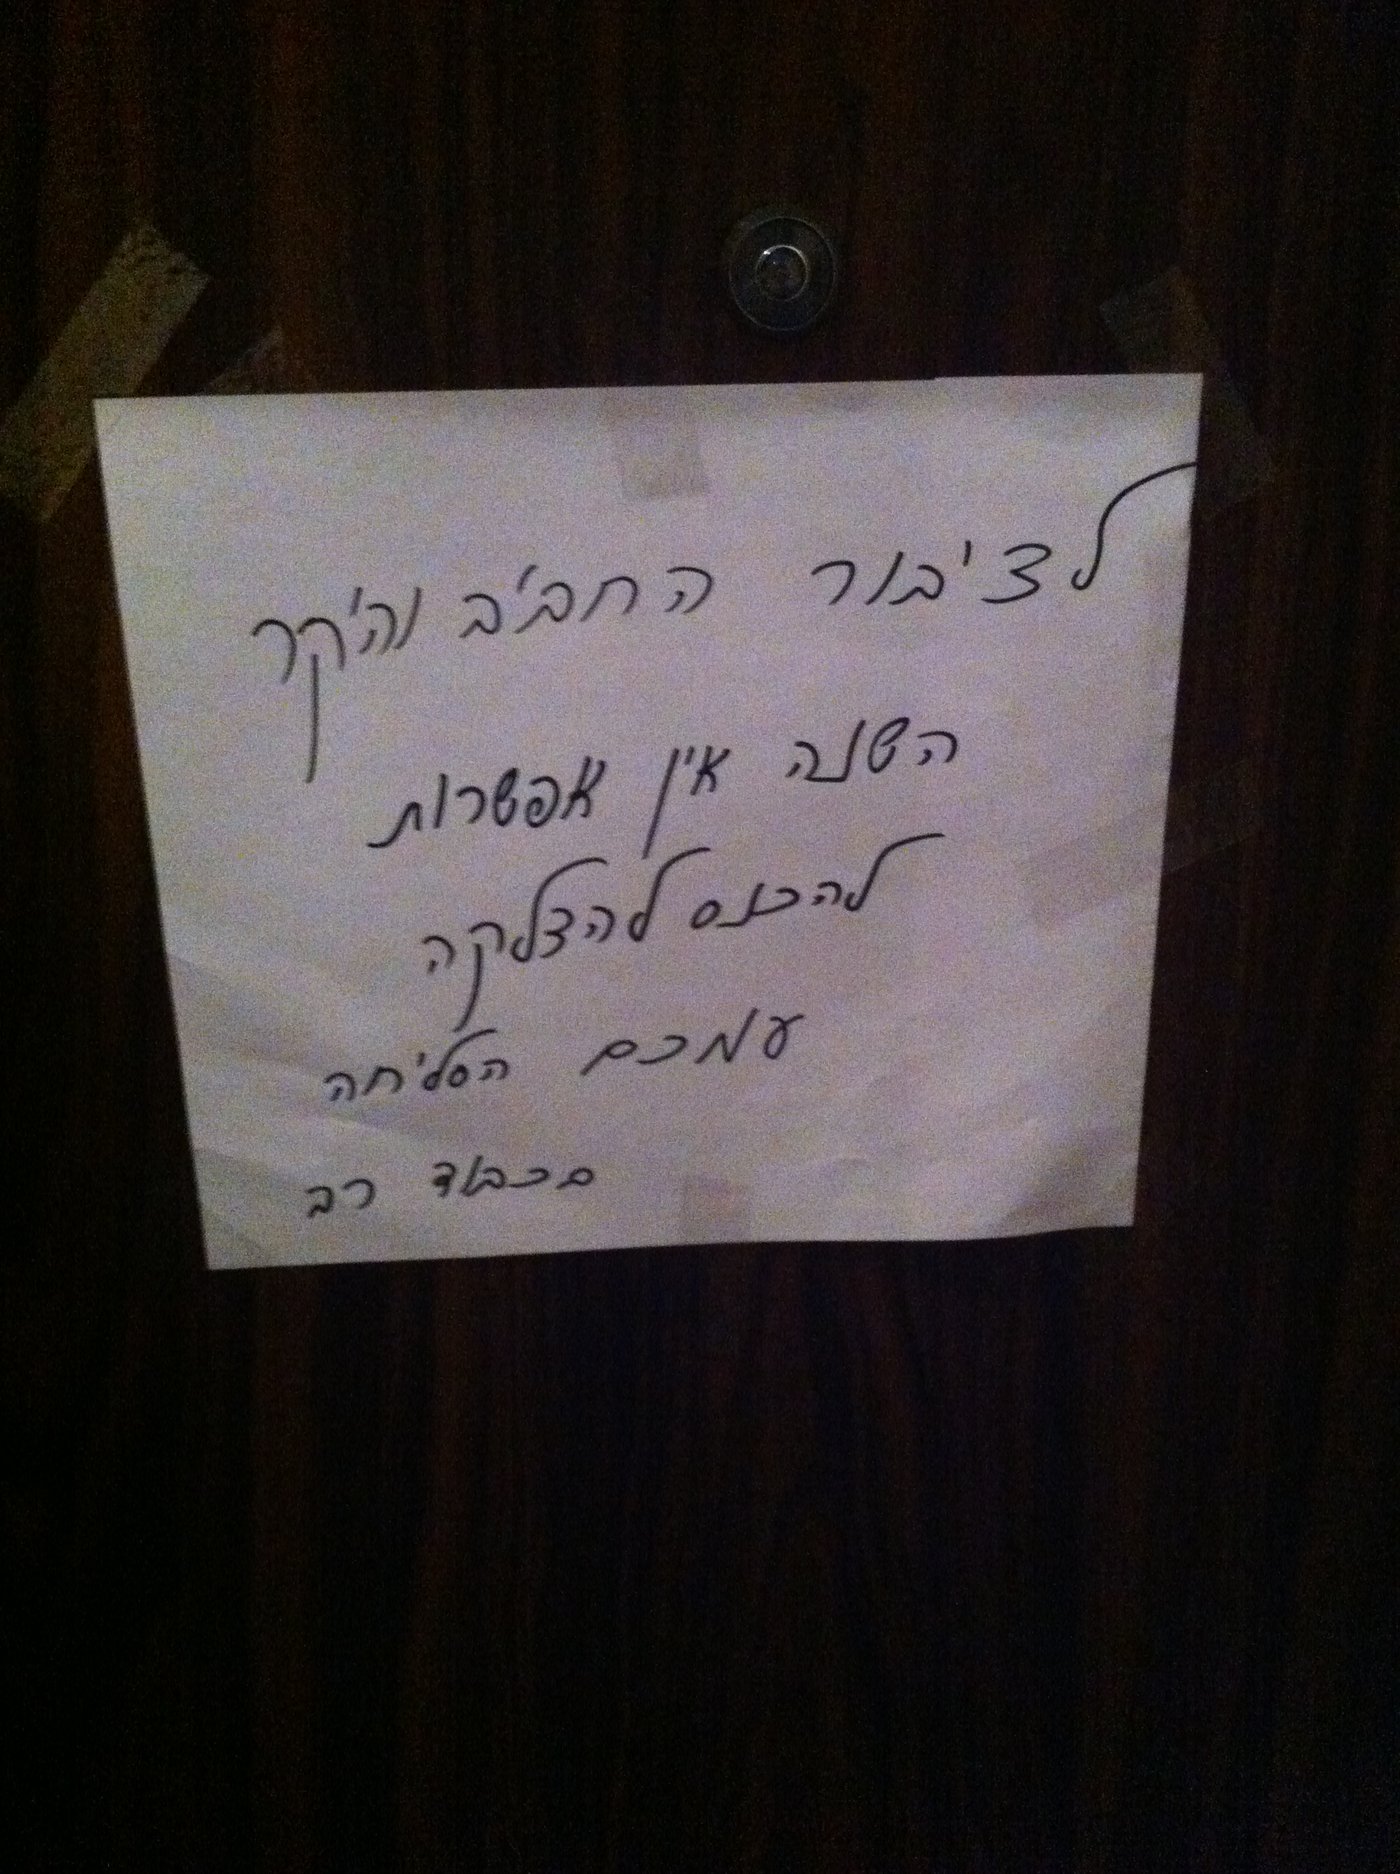 לציבור החביב והיקר
השנה אין אפשרות
להכנס להדלקה
עמכם הסליחה
בכבוד רב